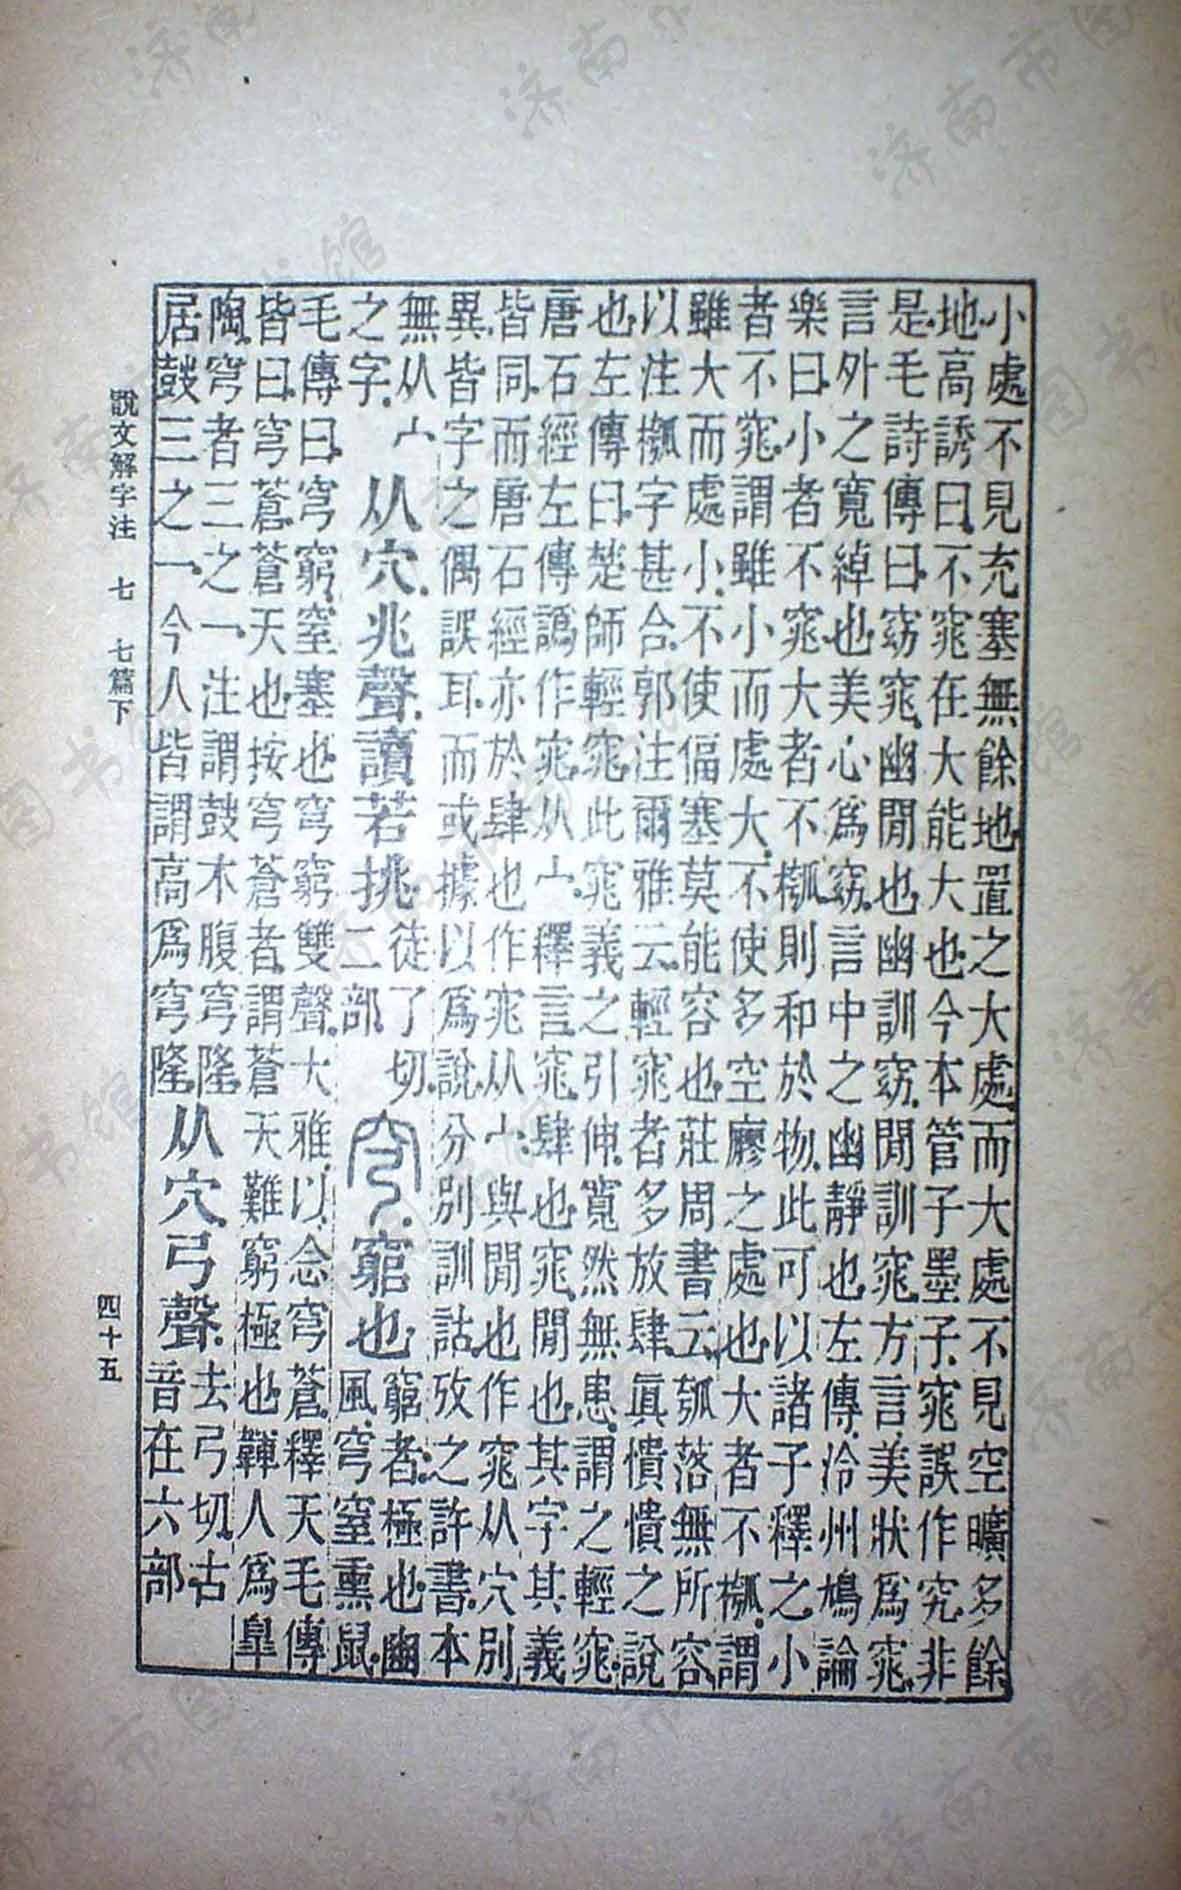 小處不見充塞無餘地置之大處而大處不見空曠多餘
地高誘曰不窕在大能大也今本管子墨子窕誤作究非
是毛詩傳曰窈窕幽閒也幽訓窈閒訓窕方言美狀爲窕
言外之寬綽也美心爲窈言中之幽靜也左傳泠州鳩論
樂曰小者不窕大者不槬則和於物此可以諸子釋之小
者不窕謂雖小而處大不使多空廫之處也大者不槬謂
雖大而處小不使偪塞莫能容也莊周書云瓠落無所容
以注槬字甚合郭注爾雅云輕窕者多放肆眞憒憒之說
也左傳曰楚師輕窕此窕義之引伸寬然無患謂之輕窕
唐石經左傳譌作窕从宀釋言窕肆也窕閒也其字其義
皆同而唐石經亦於肆也作窕从宀與閒也作窕从穴別
異皆字之偶誤耳而或據以爲說分別訓詁攷之許書本
無从宀
之字
从穴兆聲讀若挑
徒了切
二部
穹
窮也
窮者極也豳
風穹窒熏鼠
毛傳曰穹窮窒塞也穹窮雙聲大雅以念穹蒼釋天毛傳
皆曰穹蒼蒼天也按穹蒼者謂蒼天難窮極也韗人爲臯
陶穹者三之一注謂鼓木腹穹隆
居鼓三之一今人皆謂高爲穹隆
从穴弓聲
去弓切古
音在六部
說文解字注 七 七篇下
四十五
济南市图书馆